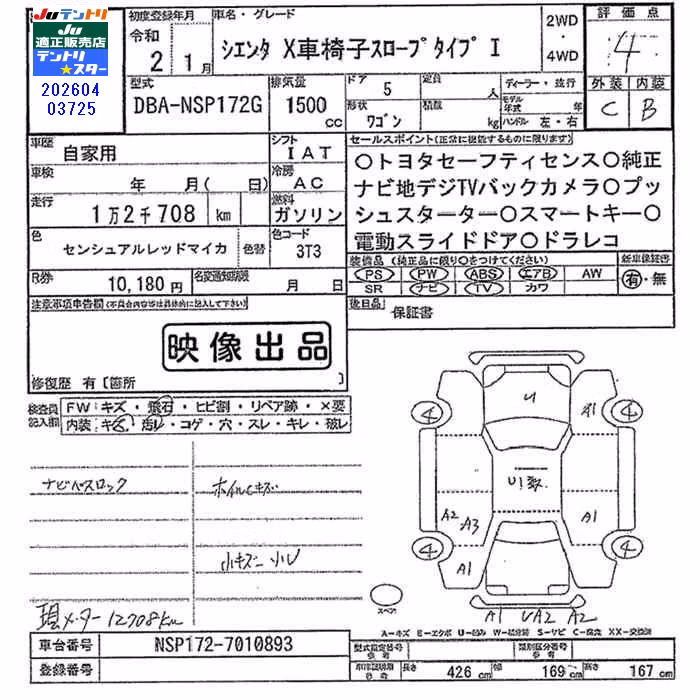 Juテントリ
Ju
適正販売店
テントリ
★スター
202604
03725
初度登録年月
令和
2 1月
車名・グレード
シエンタ X車椅子スロープタイプⅠ
2WD
・
4WD
評価点
4
外装 内装
C B
型式
DBA-NSP172G
排気量
1500
cc
ドア 5
定員 人
形状
ワゴン
積載 kg
ディーラー・並行
モデル年式 年
ハンドル 左・右
車歴 自家用
シフト
IAT
車検 年 月( 日)
冷房
AC
走行
1万2千708 km
燃料
ガソリン
色
センシュアルレッドマイカ
色替
色コード
3T3
R券
10,180円
名変通知期限 月 日
セールスポイント(正常に機能するものに限ります)
○トヨタセーフティセンス○純正
ナビ地デジTVバックカメラ○プッ
シュスターター○スマートキー○
電動スライドドア○ドラレコ
装備品(純正品に限り○をつけてください)
新車保証書
PS PW ABS エアB AW
有・無
SR ナビ TV カワ
後日品
保証書
注意事項申告欄(不具合内容等は具体的に記入して下さい)
映像出品
修復歴 有〔箇所 〕
検査員
記入欄
FW:キズ・飛石・ヒビ割・リペア跡・×要
内装:キズ・汚レ・コゲ・穴・スレ・キレ・破レ
ナビベースロック
ホイルキズ
小キズ 小U
現メーター12708km
U
4
A1
4
U1数
A2
A3
A1
4
A1
4
スペア
A1 UA2 A2
A-キズ E-エクボ U-凹み W-補修跡 S-サビ C-腐食 XX-交換済
車台番号
NSP172-7010893
登録番号
型式指定番号
参考
類別区分番号
参考
車両証明用
参考
長さ 426 cm
幅 169 cm
高さ 167 cm